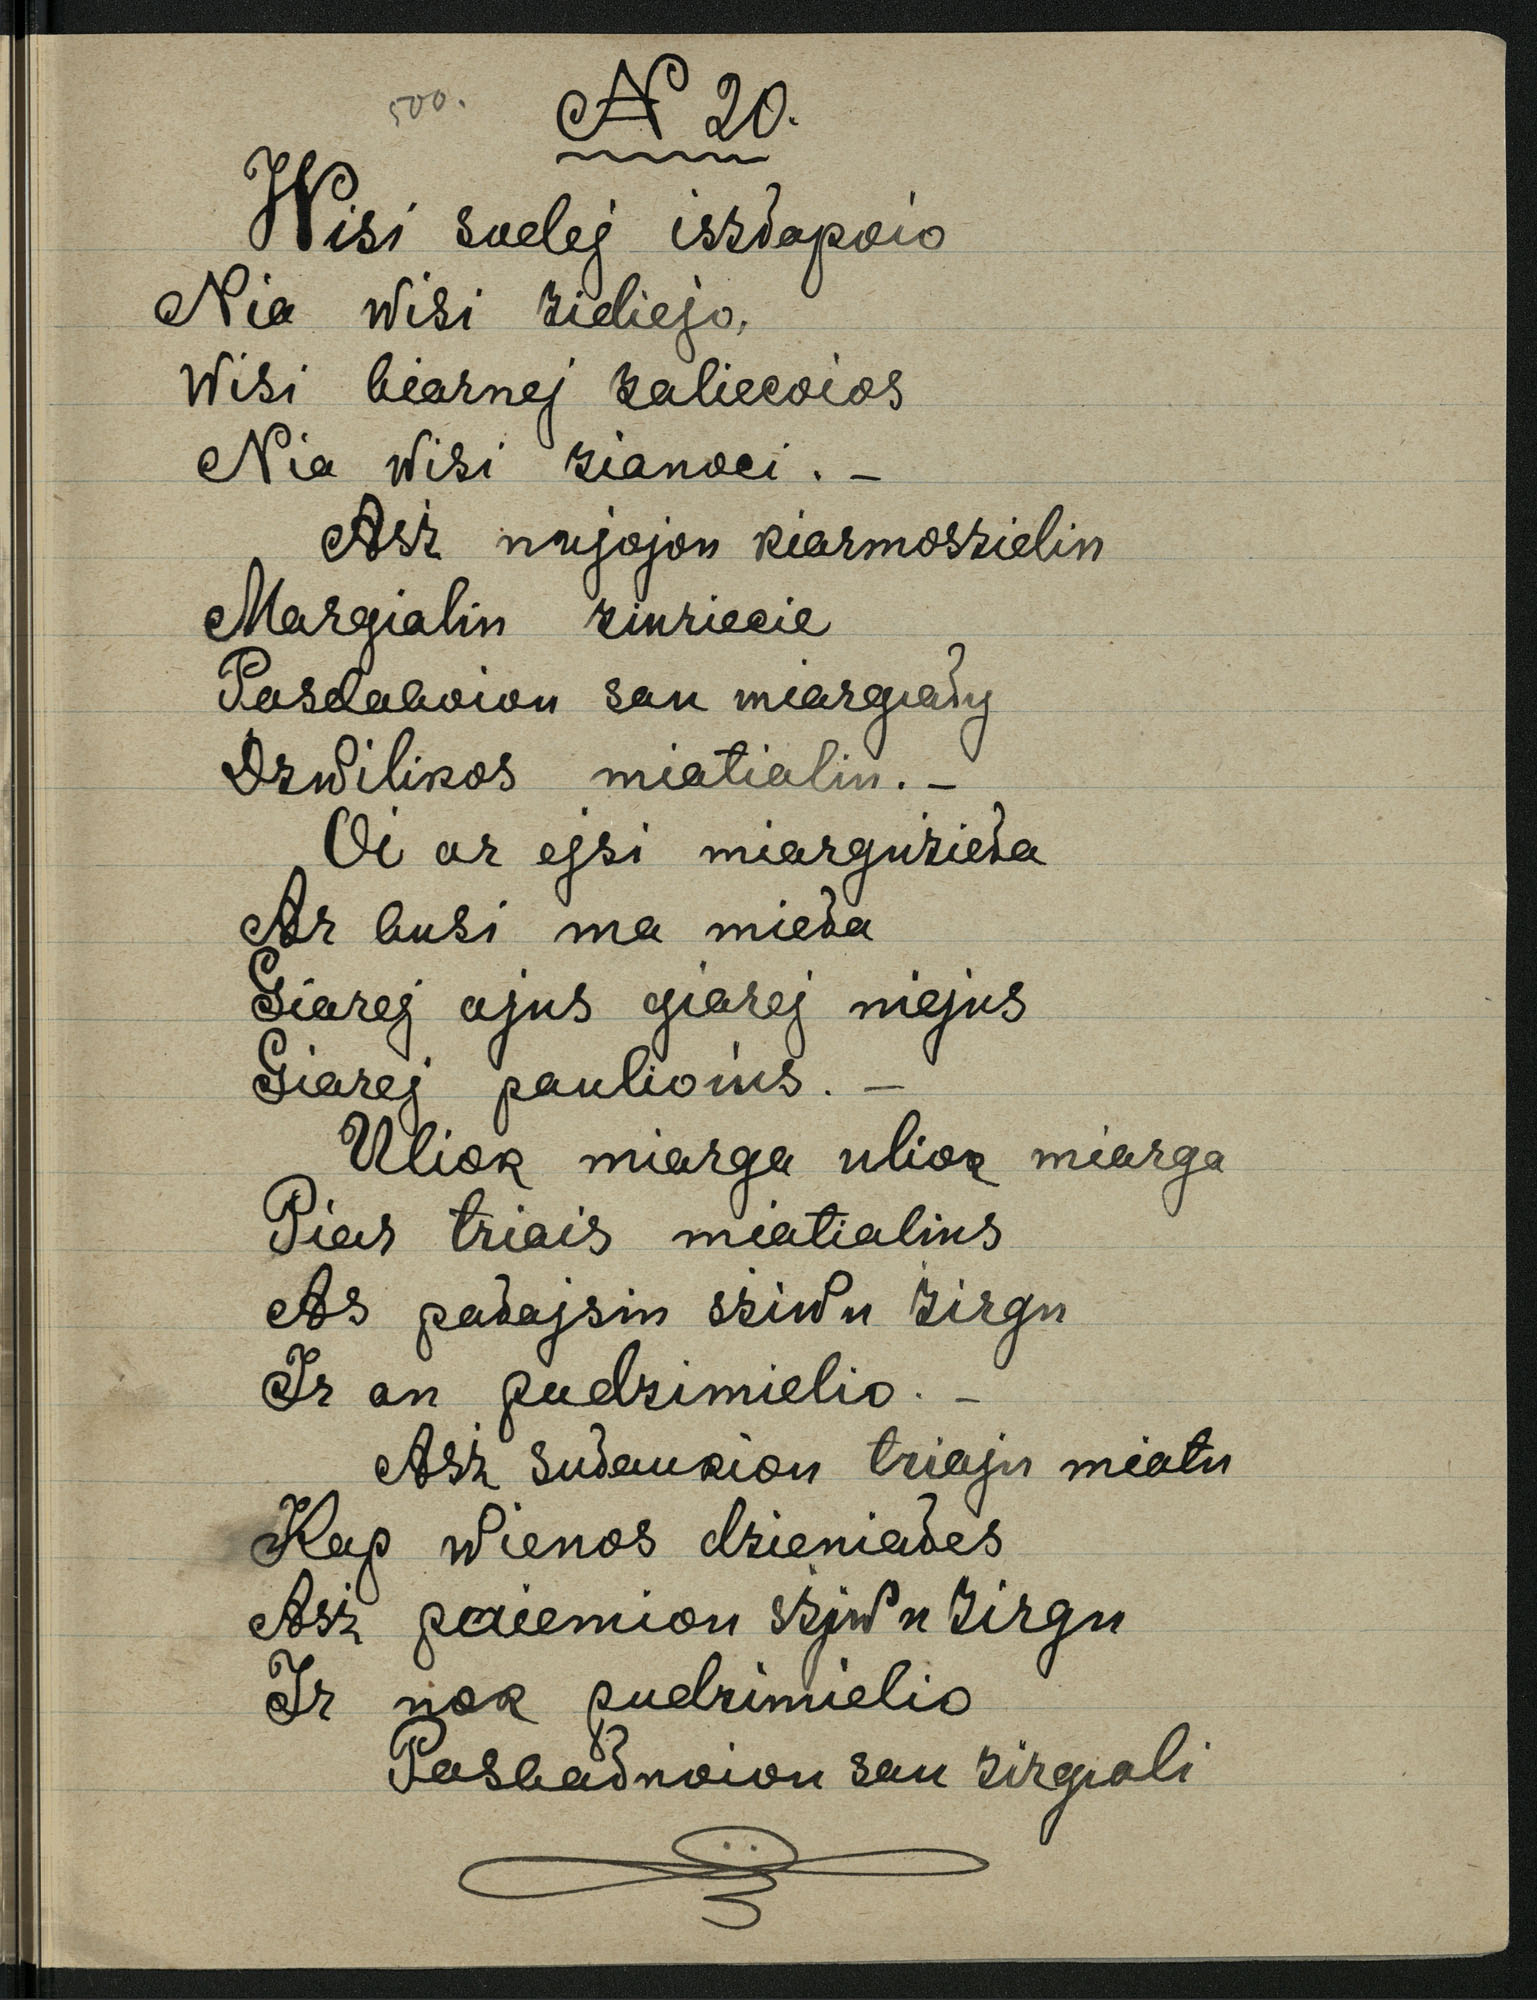 500.
N 20.
Wisi sodej iszdapoio
Nia wisi żidiejo,
Wisi biarnej żaliecoios
Nia wisi żianoci. –
Asż nujojou kiarmoszielin
Margialin żiuriecie
Pasdaboiou sau miargiady
Dzwilikos miatialin. –
Oi ar ejsi miargużieda
Ar busi ma mieda
Giarej ajus giarej niejus
Giarej paulioius. –
Uliok miarga uliok miarga
Piar triais miatialius
As padajsin sżiwu żirgu
Ir an pudzimielio. –
Asż sudaukiou triaju miatu
Kap wienos dzieniades
Asż paiemiou sżjwu żirgu
Ir nok pudzimielio
Posbadnoiou sau żirgiali